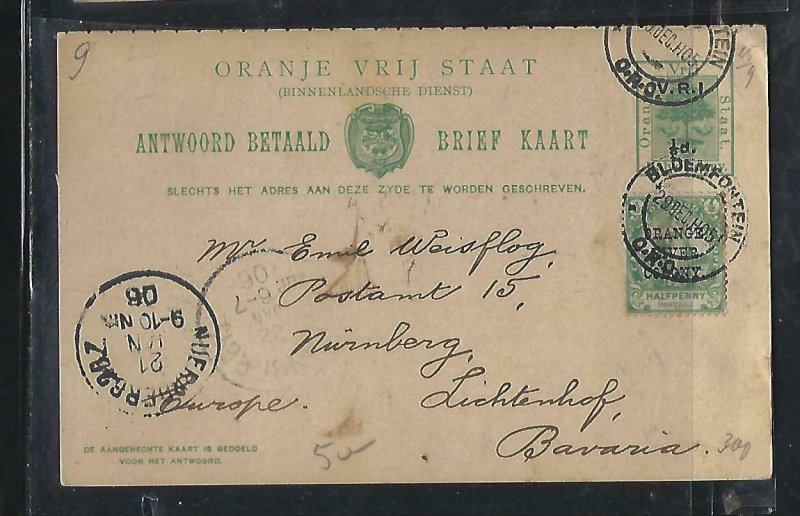 9
ORANJE VRIJ STAAT
(BINNENLANDSCHE DIENST)
ANTWOORD BETAALD BRIEF KAART
SLECHTS HET ADRES AAN DEZE ZYDE TE WORDEN GESCHREVEN.
DEC
O.R.C.
V.R.I.
Staat.
½d.
BLOEMFONTEIN
29 DEC
O.R.C.
ORANGE
RIVER
COLONY.
HALFPENNY
POSTAGE
Mr Emil Weisflog,
Postamt 15,
Nürnberg,
Lichtenhof,
Bavaria.
Europe.
06
9-10 N
21
06
6-7
DE AANGEHECHTE KAART IS BEDOELD
VOOR HET ANTWOORD.
50
300